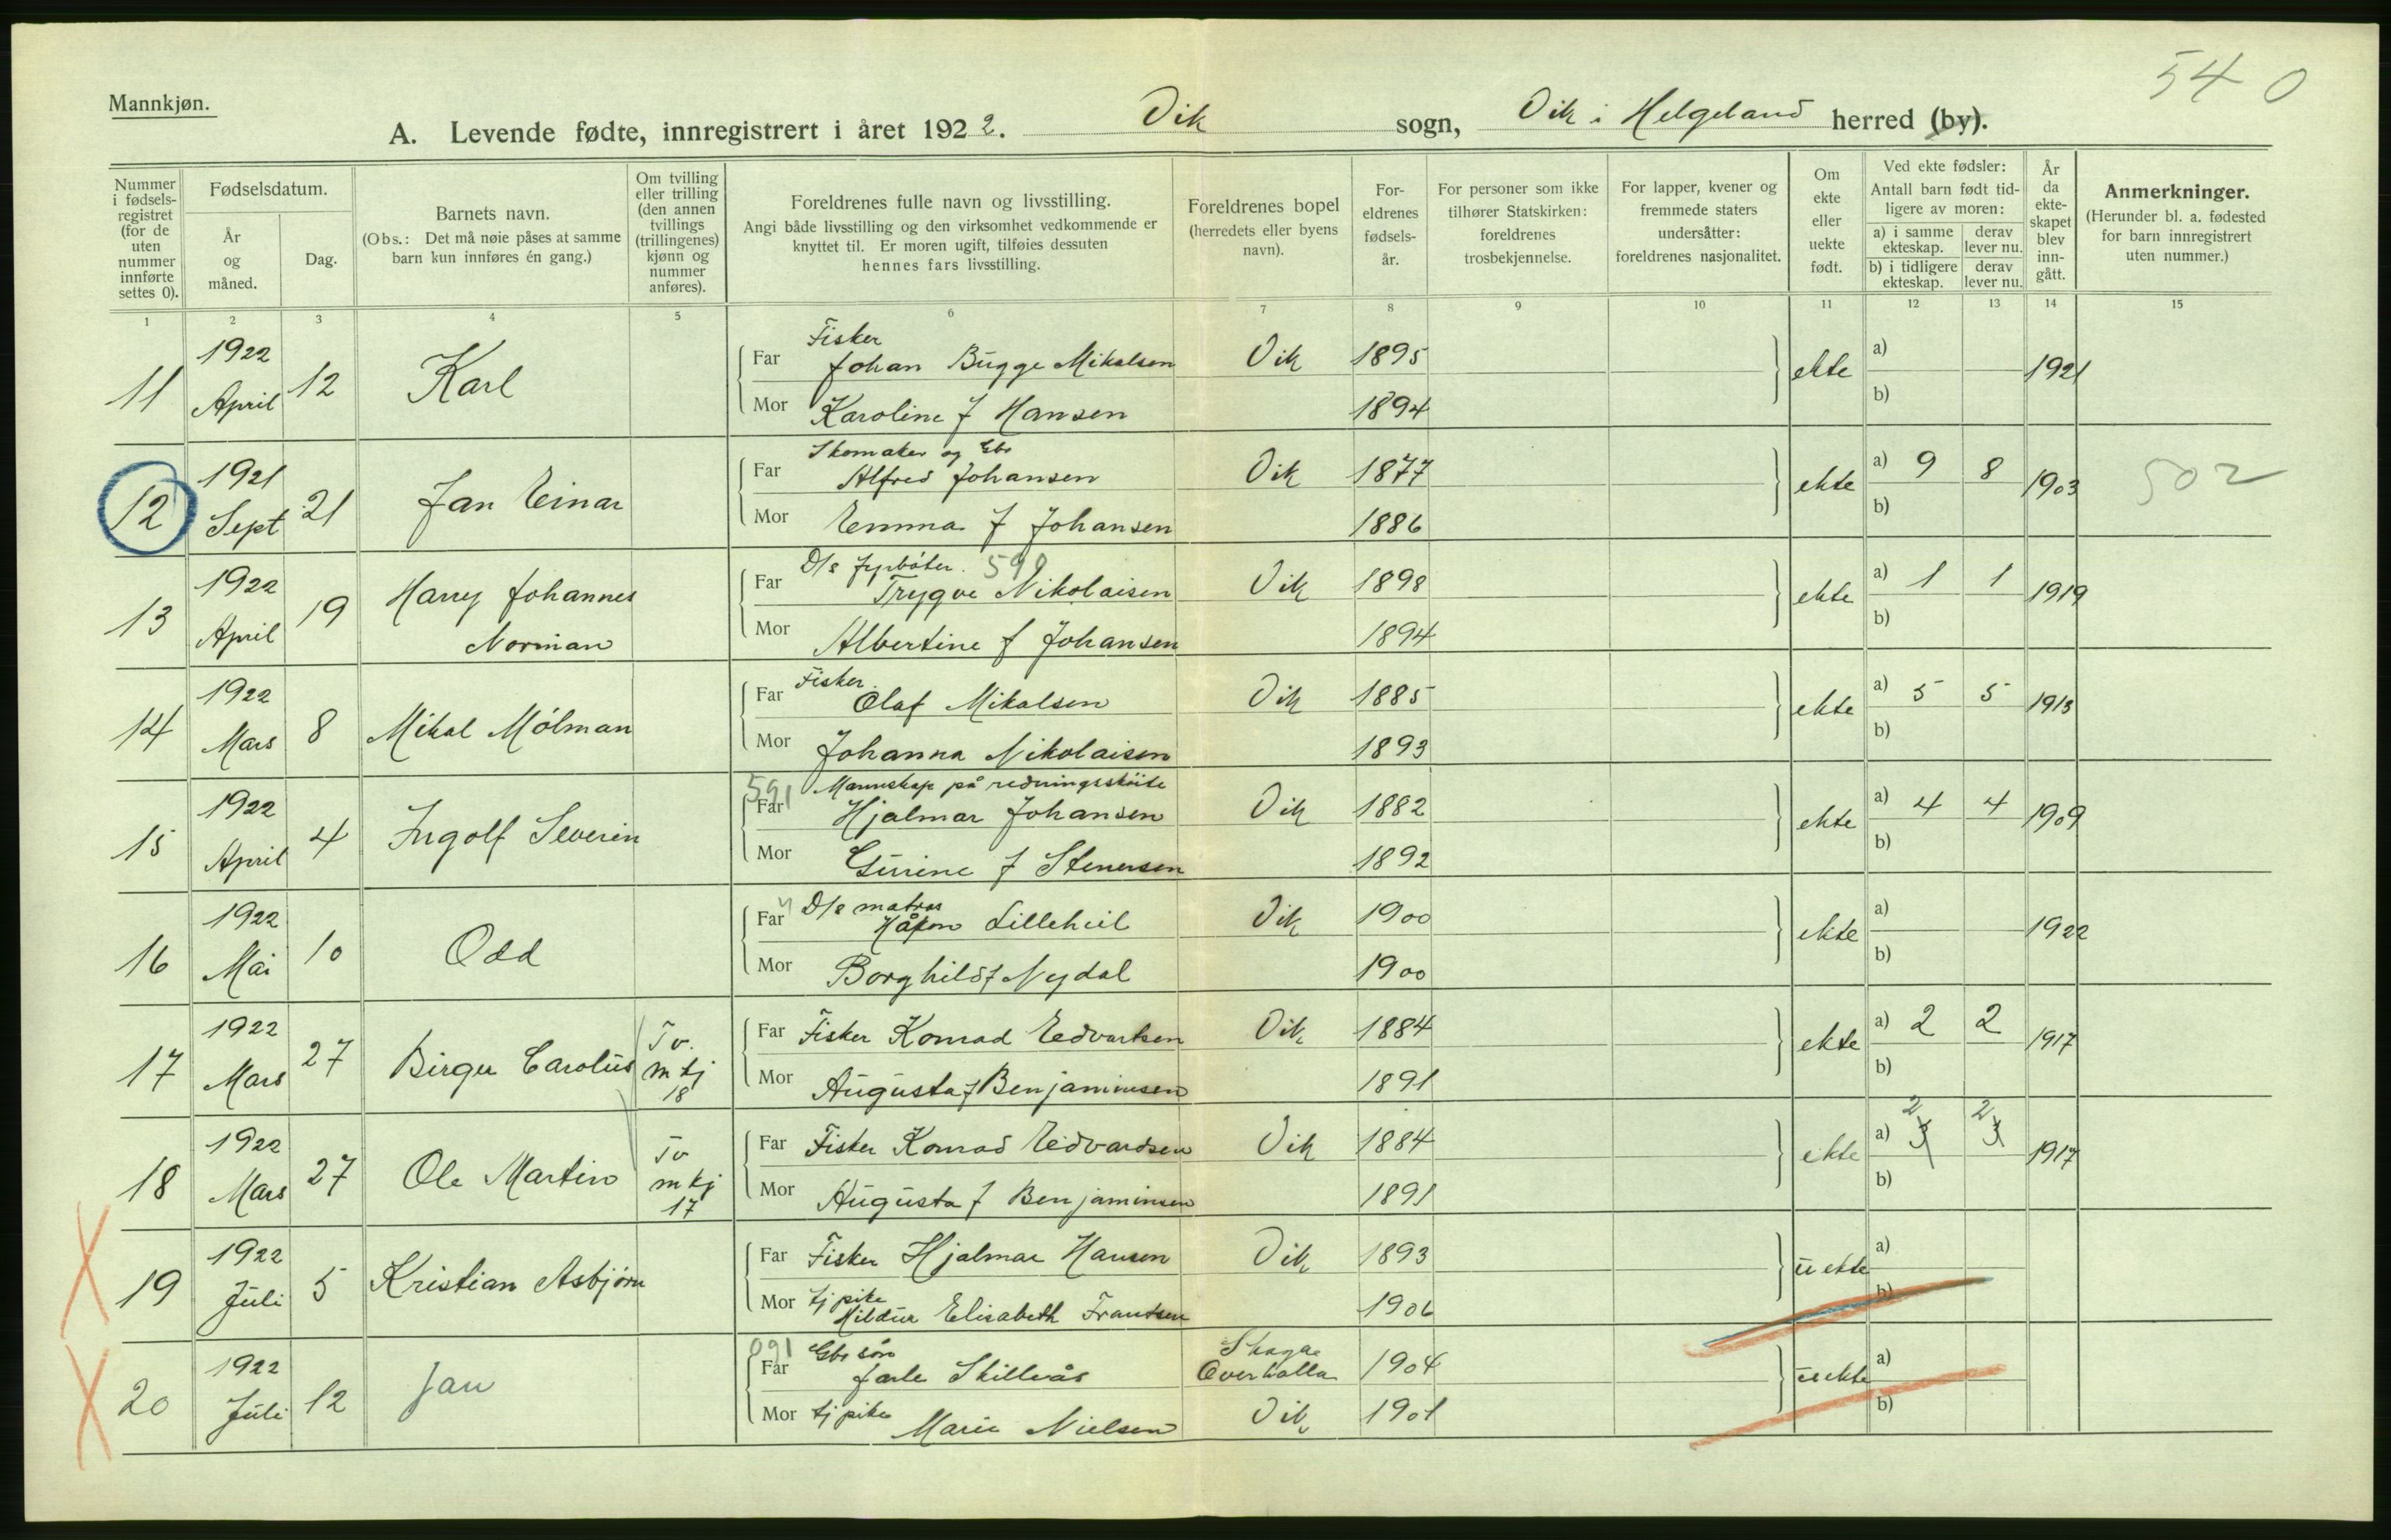 54 0
Mannkjøn.
A. Levende fødte, innregistrert i året 1922. Vik sogn, Vik i Helgeland herred (by).
Nummer i fødselsregistret (for de uten nummer innførte settes 0).
Fødselsdatum.
År og måned.
Dag.
Barnets navn.
(Obs.: Det må nøie påses at samme barn kun innføres én gang.)
Om tvilling eller trilling (den annen tvillings (trillingenes) kjønn og nummer anføres).
Foreldrenes fulle navn og livsstilling.
Angi både livsstilling og den virksomhet vedkommende er knyttet til. Er moren ugift, tilføies dessuten hennes fars livsstilling.
Foreldrenes bopel (herredets eller byens navn).
Foreldrenes fødselsår.
For personer som ikke tilhører Statskirken: foreldrenes trosbekjennelse.
For lapper, kvener og fremmede staters undersåtter: foreldrenes nasjonalitet.
Om ekte eller uekte født.
Ved ekte fødsler:
Antall barn født tidligere av moren:
a) i samme ekteskap. derav lever nu.
b) i tidligere ekteskap. derav lever nu.
År da ekteskapet blev inngått.
Anmerkninger.
(Herunder bl. a. fødested for barn innregistrert uten nummer.)
1 2 3 4 5 6 7 8 9 10 11 12 13 14 15
11 1922 April 12 Karl
Fisker
Far Johan Bugge Mikalsen Vik 1895 ekte a) b) 1921
Mor Karoline f Hansen 1894
12 1921 Sept 21 Jan Einar
Skomaker og Gbr
Far Alfred Johansen Vik 1877 ekte a) 9 8 b) 1903 502
Mor Emma f Johansen 1886
13 1922 April 19 Harry Johannes Norman
D/s fyrbøter. 590
Far Trygve Nikolaisen Vik 1898 ekte a) 1 1 b) 1919
Mor Albertine f Johansen 1894
14 1922 Mars 8 Mikal Mólman
Fisker
Far Olaf Mikalsen Vik 1885 ekte a) 5 5 b) 1913
Mor Johanna Nikolaisen 1893
15 1922 April 4 Ingolf Severin
591 Mannskap på redningsskøite
Far Hjalmar Johansen Vik 1882 ekte a) 4 4 b) 1909
Mor Gurine f Stenersen 1892
16 1922 Mai 10 Odd
D/s matros
Far Håkon Lilleheil Vik 1900 ekte a) b) 1922
Mor Borghild f Nydal 1900
17 1922 Mars 27 Birger Carolus Tv. m kj 18
Far Fisker Konrad Edvartsen Vik 1884 ekte a) 2 2 b) 1917
Mor Augusta f Benjaminsen 1891
18 1922 Mars 27 Ole Martin Tv m kj 17
Far Fisker Konrad Edvardsen Vik 1884 ekte a) 2 3 2 3 b) 1917
Mor Augusta f Benjaminsen 1891
19 1922 Juli 5 Kristian Asbjørn
Far Fisker Hjalmar Hansen Vik 1893 uekte a) b)
Mor tj pike Hildur Elisabeth Frantsen 1906
20 1922 Juli 12 Jan
091 Gbr søn
Far Jarle Skillerås Skage Overhalla 1904 uekte a) b)
Mor tj pike Marie Nielsen Vik 1901